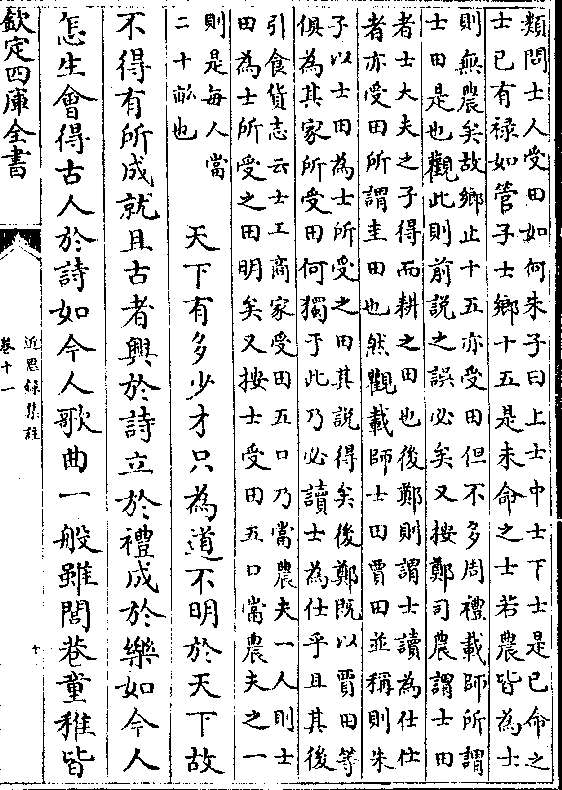 類問士人受田如何朱子曰上士中士下士是已命之
士已有禄如管子士鄉十五是未命之士若農皆為士
則無農矣故鄉止十五亦受田但不多周禮載師所謂
士田是也觀此則前説之誤必矣又按鄭司農謂士田
者士大夫之子得而耕之田也後鄭則謂士讀為仕仕
者亦受田所謂圭田也然觀載師士田賈田並稱則朱
子以士田為士所受之田其説得矣後鄭既以賈田等
俱為其家所受田何獨于此乃必讀士為仕乎且其後
引食貨志云士工商家受田五口乃當農夫一人則士
田為士所受之田明矣又按士受田五口當農夫之一
則是每人當
二十畝也
天下有多少才只為道不明於天下故
不得有所成就且古者興於詩立於禮成於樂如今人
怎生會得古人於詩如今人歌曲一般雖閭巷童稚皆
欽定四庫全書
近思録集註
卷十一
十